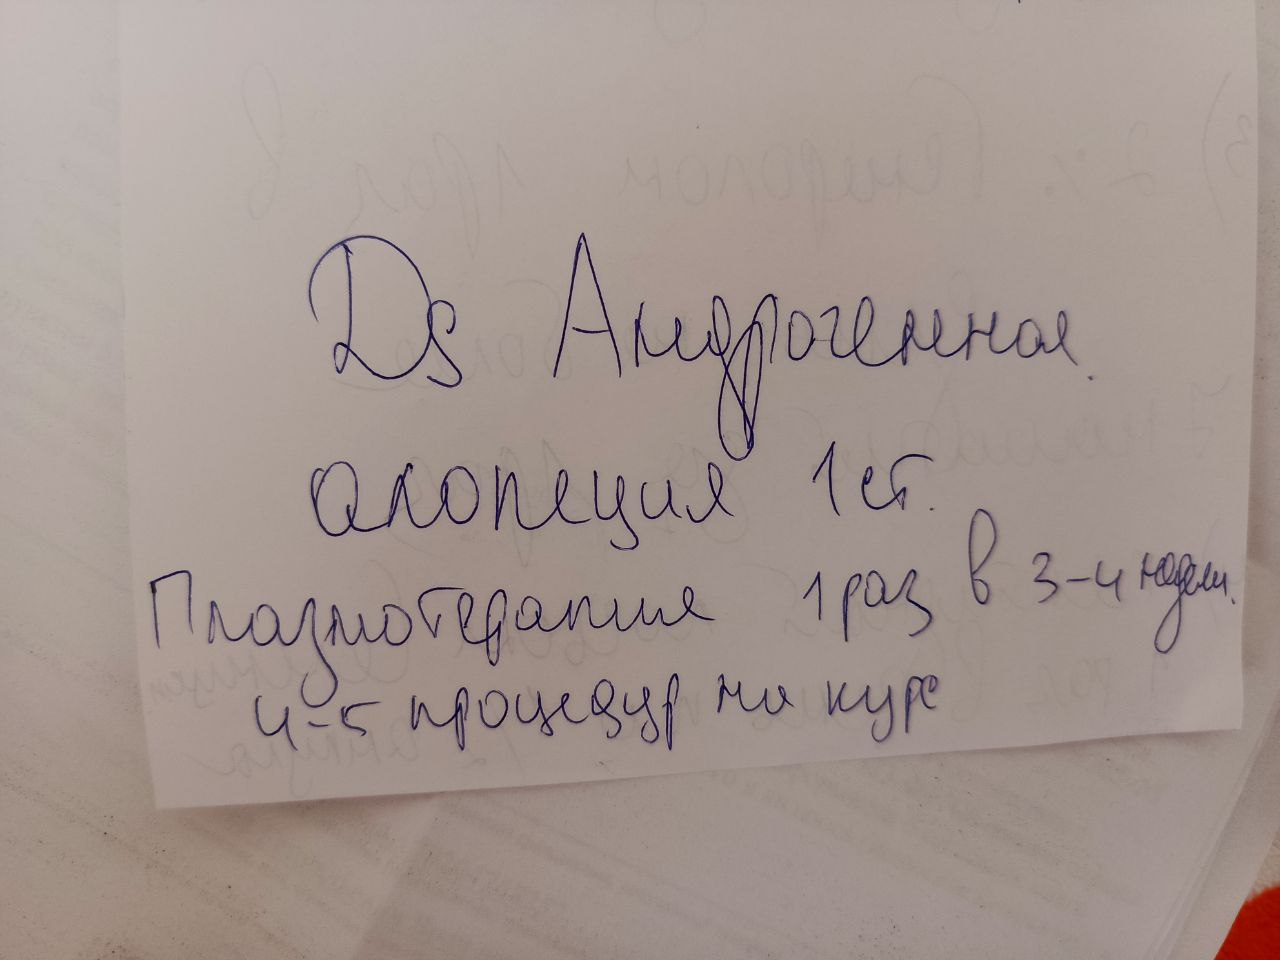 Ds Андрогенная
алопеция 1 ст.
Плазмотерапия 1 раз в 3-4 недели.
4-5 процедур на курс